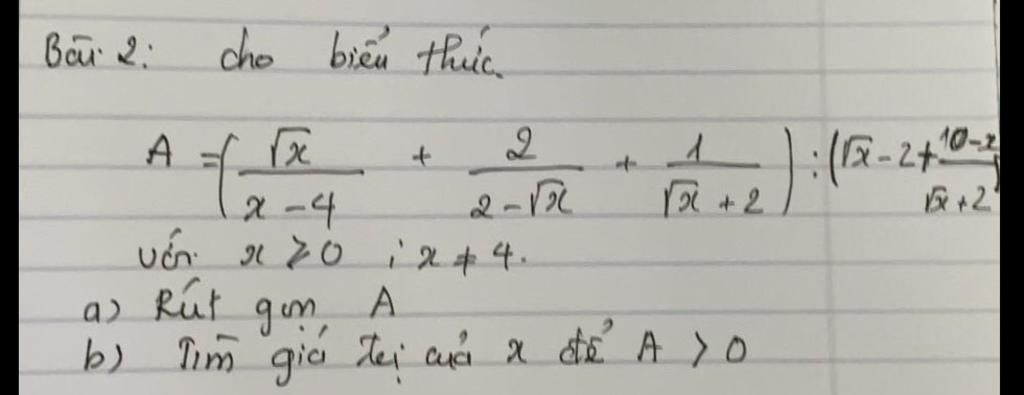 Bài 2: cho biểu thức.
A = ( √x / (x - 4) + 2 / (2 - √x) + 1 / (√x + 2) ) : ( √x - 2 + (10 - x) / (√x + 2) )
với x ≥ 0 ; x ≠ 4.
a) Rút gọn A
b) Tìm giá trị của x để A > 0